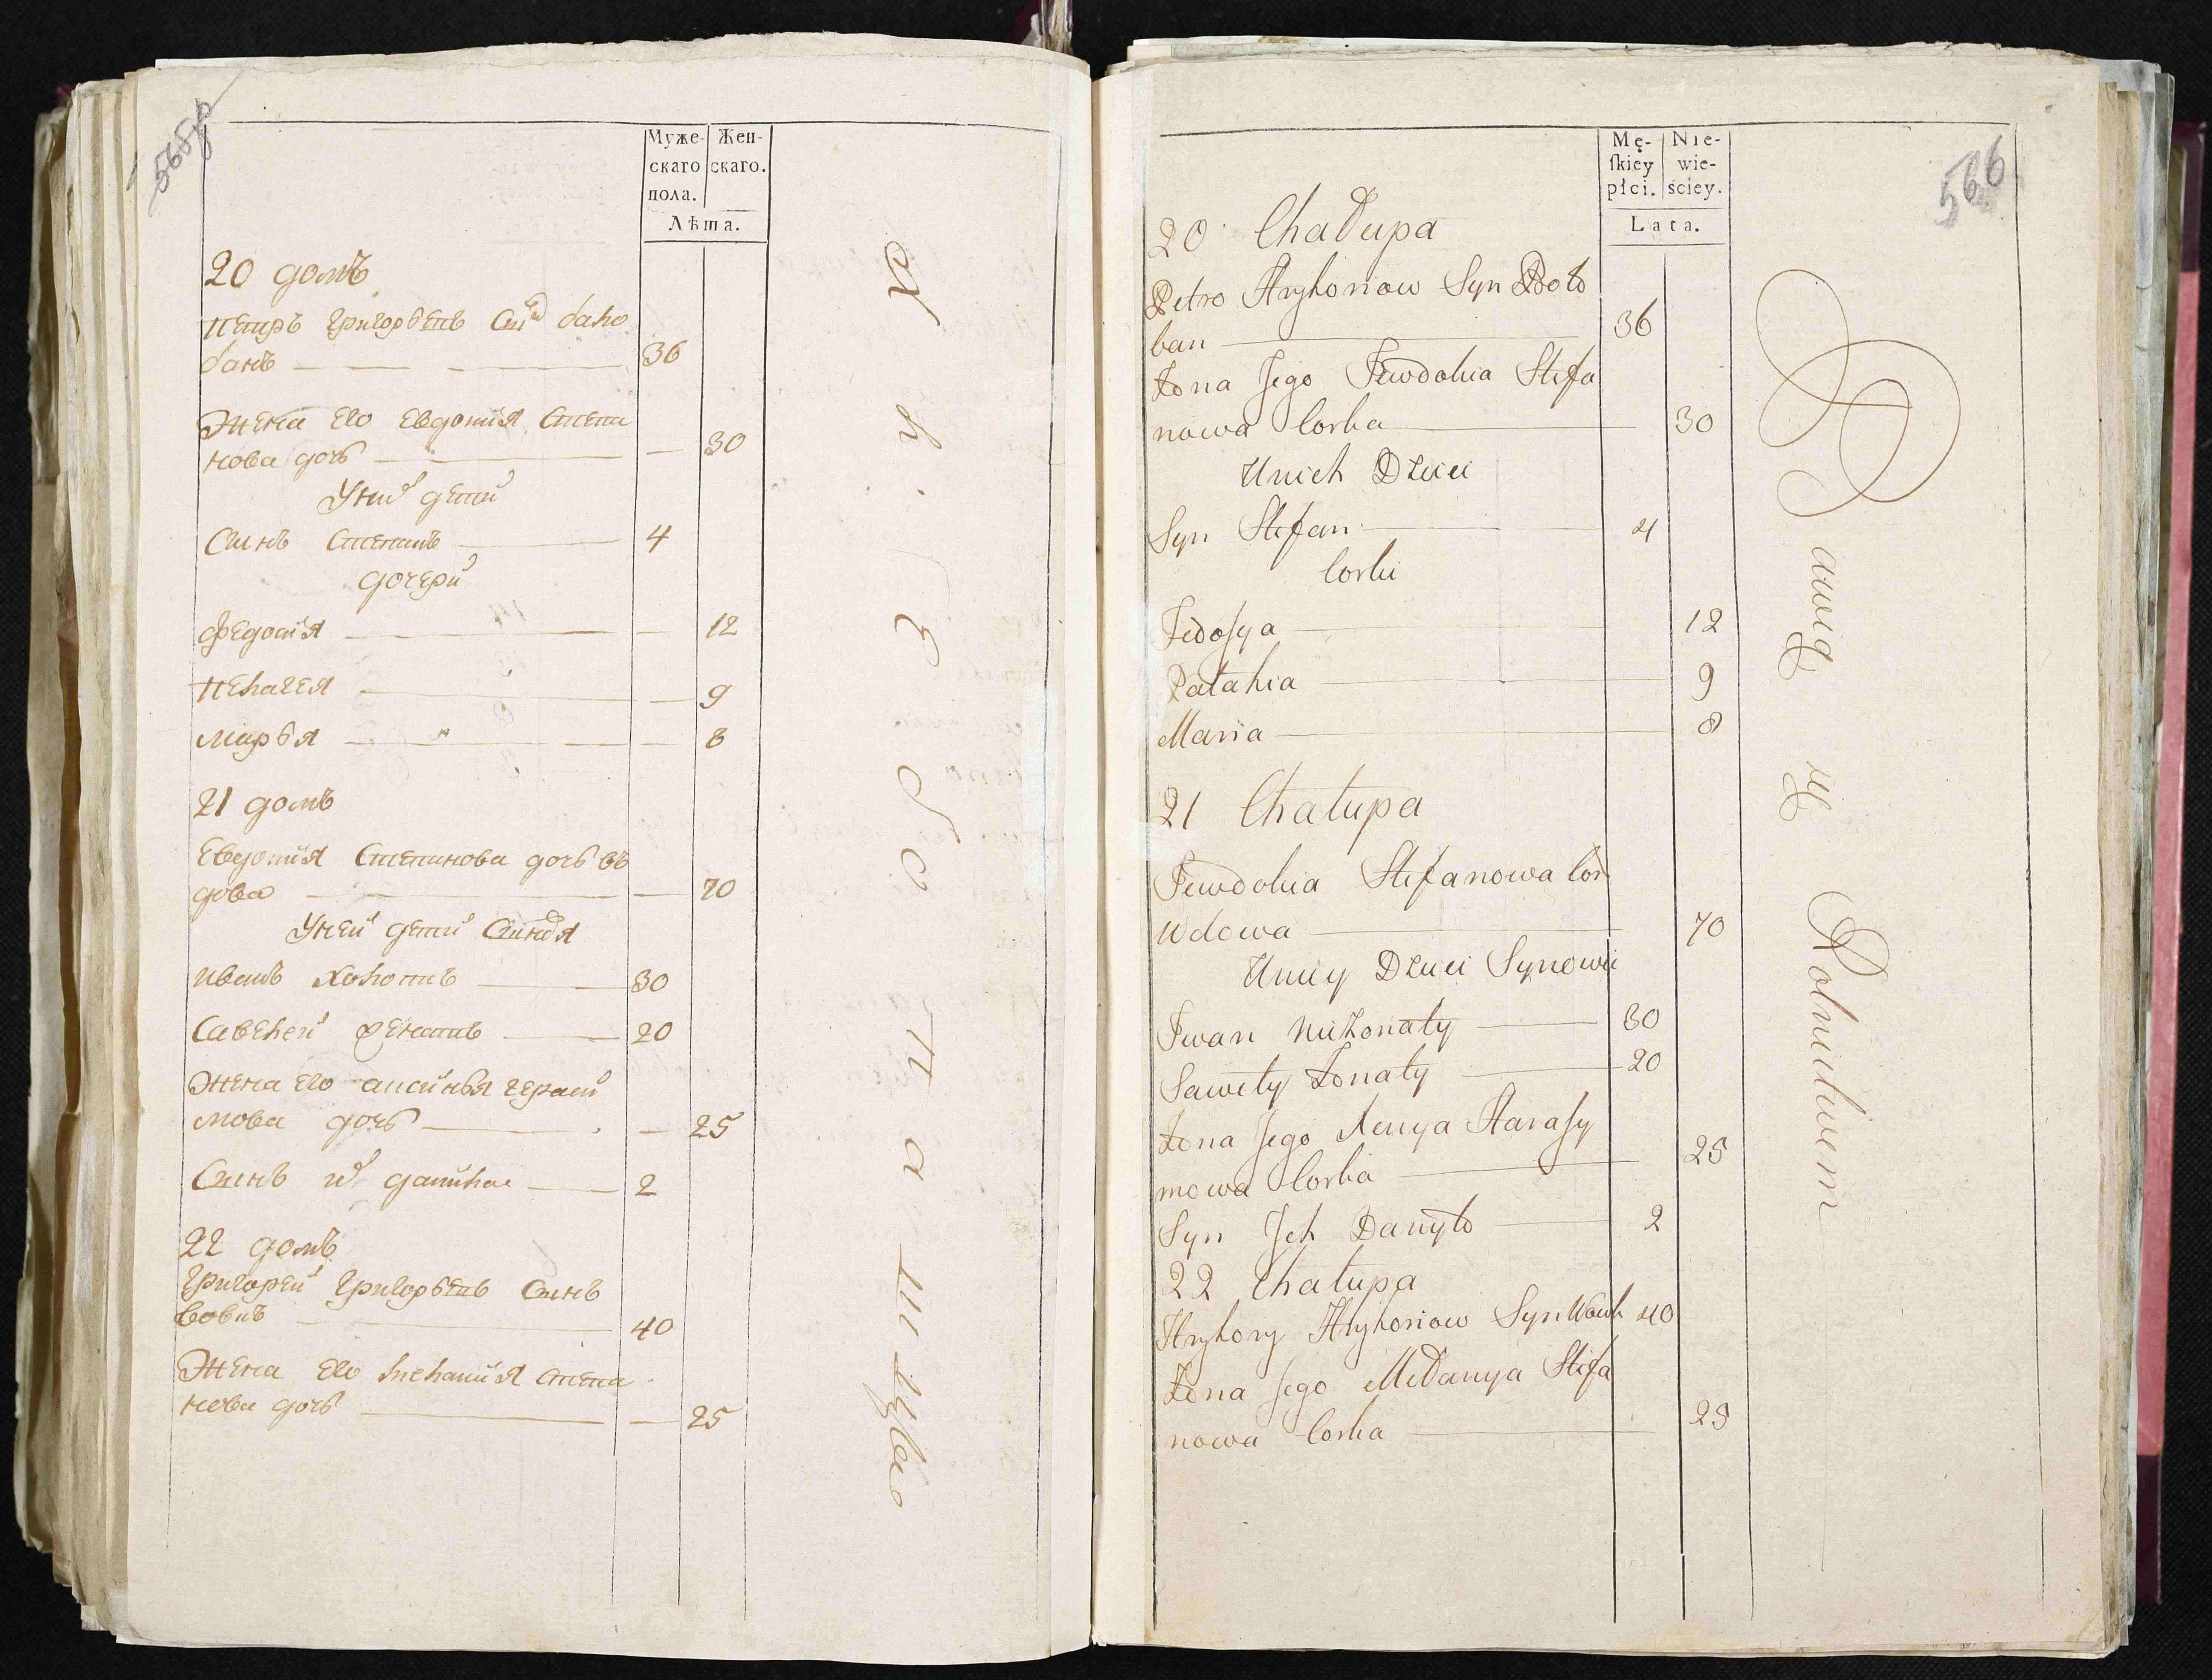 565об
Муже-
скаго
пола.
Жен-
скаго.
Лѣта.
20 домъ
Петръ Григорьевъ Синъ бало
банъ 36
Жена Его Евдокия Степа
нова дочь 30
У них дети
Синъ Степанъ 4
дочери
Федосия 12
Пелагея 9
Марья 8
21 домъ
Евдокия Степанова дочь въ
дова 70
У ней дети Синовя
Иванъ холостъ 30
Савелей женатъ 20
Жена Его Аксинья гераси
мова дочь 25
Синъ их данила 2
22 домъ
Григорей Григорьевъ Синъ
вовкъ 40
Жена Его Мелания Степа
нова дочь 25
566
Mę-
ſkiey
płci.
Nie-
wie-
ściey.
Lata.
20 Chałupa
Petro Hryhoriow Syn Boło
ban 36
Żona Jego Jewdokia Stefa
nowa Corka 30
Unich Dzieci
Syn Stefan 4
Corki
Fedosya 12
Palahia 9
Maria 8
21 Chałupa
Jewdokia Stefanowa Cor
Wdowa 70
Uniey Dzieci Synowie
Iwan nieżonaty 30
Sawely Żonaty 20
Żona Jego Xenya Harasy
mowa Corka 25
Syn Jch Danyło 2
22 Chałupa
Hryhory Hryhoriow Syn Wowk 40
Żona Jego Mełanya Stefa
nowa Corka 25
Bawią się Rolnictwem